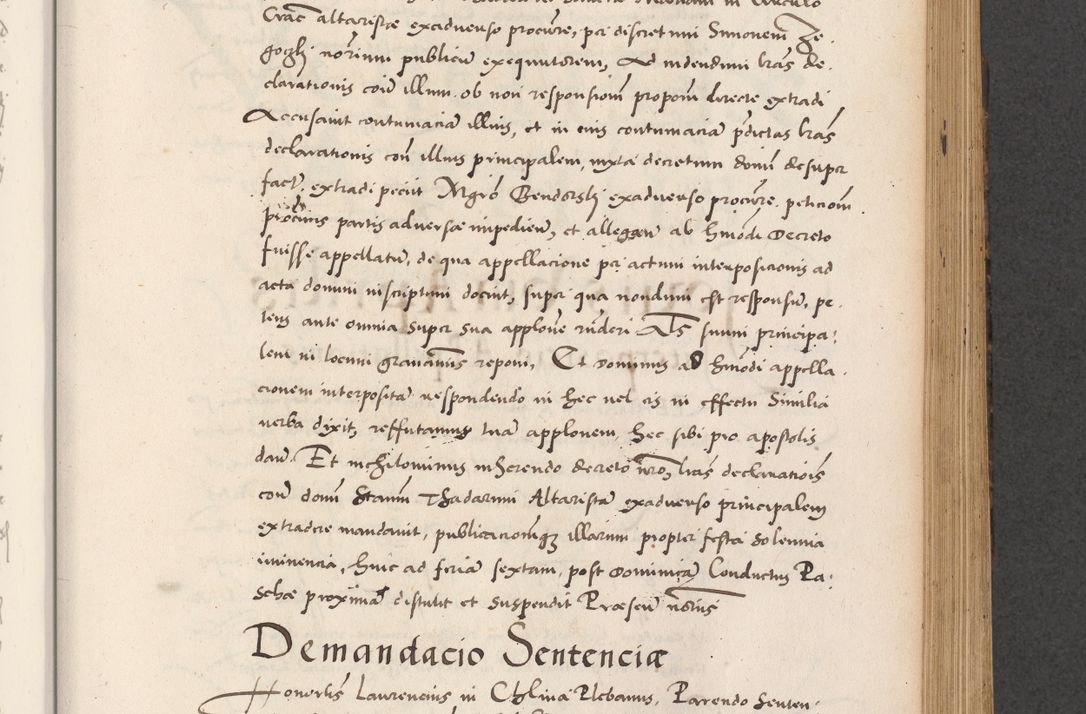 Crac̃ altaristæ exaduerso procur̃e, per discretum Simonem Ze-
goczki notarium publicum exequutorem, Ad uidendum lr̃as de-
clarationis coñ illum ob non responsionem proponi directe extradi
Accusauit contumaciã illius, et in eius contumaciã p̃dictas lr̃as
declarationis coñ illius principalem, iuxta decretum domini desuper
fact̃, extradi peciit Mgr̃o Gendorski exaduerso procur̃e, peticionem
procuris partis aduersæ impedien, et allegan̄ ab hmõdi Decreto
fuisse appellatum, de qua appellacione per actum interposicionis ad
acta domini inscriptum docuit, super qua nondum est responsum, pe-
tens ante omnia super sua applone rñderi Als suum principa-
lem in locum grauaminis reponi, Et Dominus ad hmõdi appella-
cionem interpositã respondendo in hec uel eis in effectu Similia
uerba dixit, reffutamus tuã applonem, hec sibi pro apostolis
dan̄. Et nihilominus inherendo decreto nr̃o, lr̃as declaratiois
coñ domi Stanm̃ Thadarum Altaristã exaduerso principalem
extradere mandauit, publicacionemq illarum propter festa solennia
iminencia, huic ad feriã sextam, post Dominicã Conductus Pa-
schæ proximã distulit et suspendit Præsen̄ notarius
Demandacio Sentenciæ
Honorlis Laurencius in Chliną Plebanus, Parendo Senten-